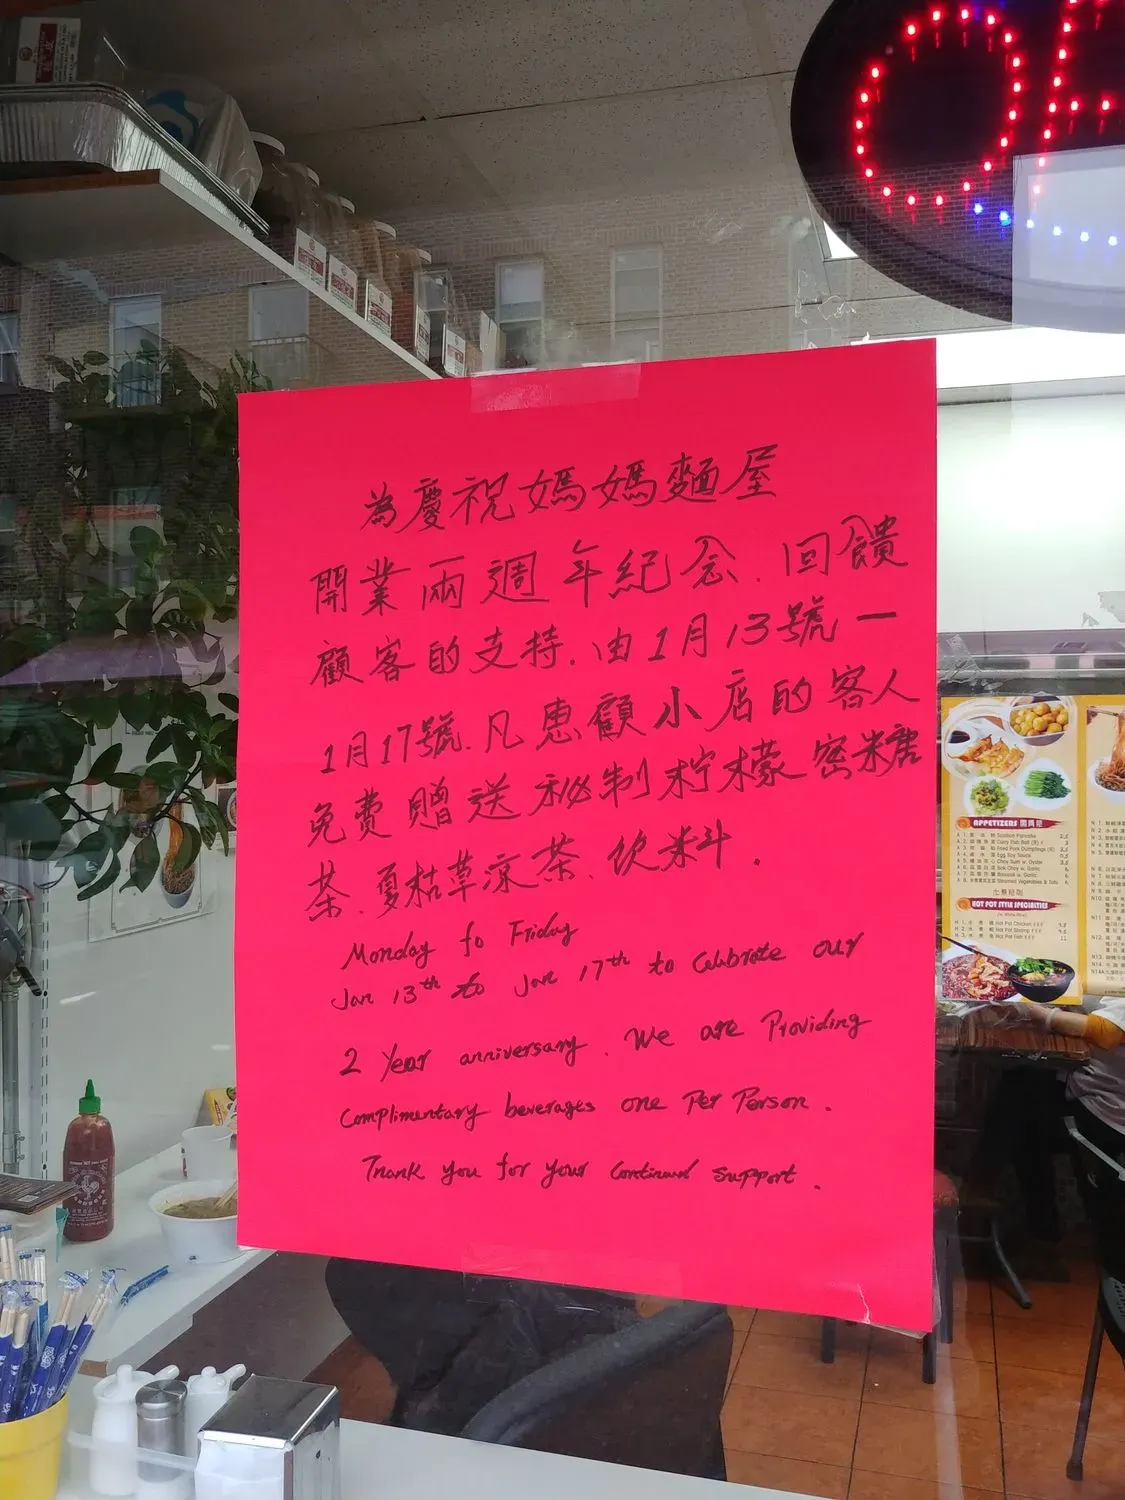 為慶祝媽媽麵屋
開業兩週年紀念.回饋
顧客的支持.由1月13號一
1月17號.凡惠顧小店的客人
免費贈送秘制柠檬密糖
茶.夏枯草凉茶.饮料.
Monday to Friday
Jan 13th to Jan 17th to Celebrate our
2 Year anniversary. We are Providing
Complimentary beverages one Per Person.
Thank you for your Continued Support.
APPETIZERS 開胃菜
HOT POT STYLE SPECIALTIES